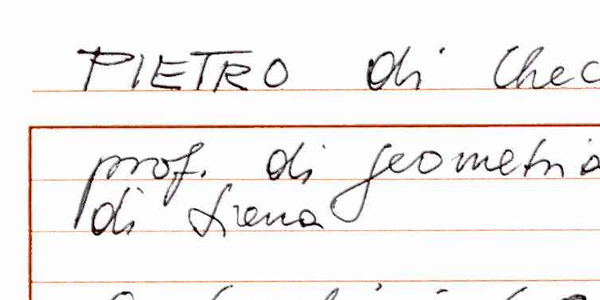 PIETRO di Chec
prof. di geometria
di Siena